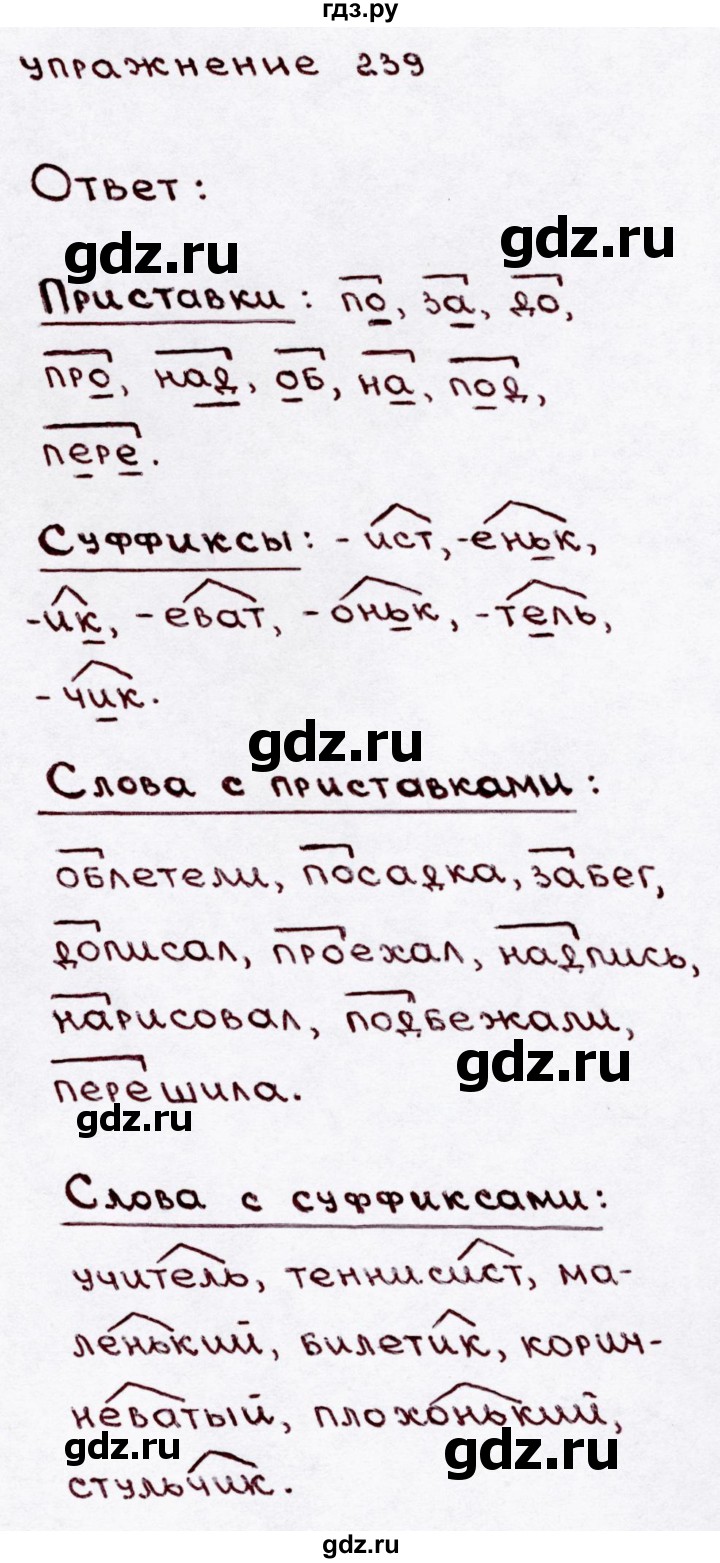 гдз.ру
упражнение 239
Ответ:
gdz.ru
gdz.ru
Приставки: по, за, до,
про, над, об, на, под,
пере.
Суффиксы: -ист, -еньк,
-ик, -еват, -оньк, -тель,
-чик.
gdz.ru
Слова с приставками:
облетели, посадка, забег,
дописал, проехал, надпись,
нарисовал, подбежали,
gdz.ru
перешила.
gdz.ru
Слова с суффиксами:
учитель, теннисист, ма-
ленький, билетик, корич-
неватый, плохонький,
gdz.ru
gdz.ru
стульчик.
gdz.ru